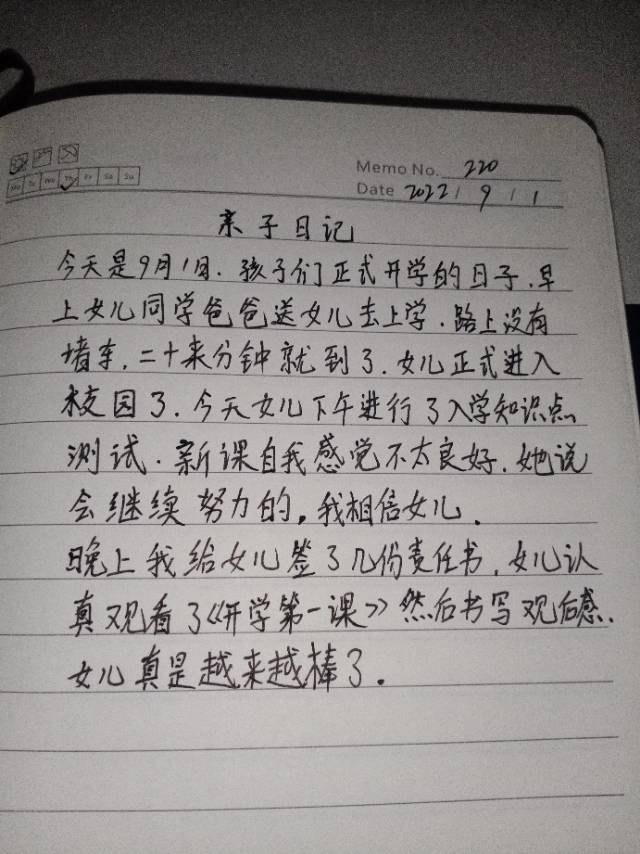 Memo No. 220
Mo Tu We Th Fr Sa Su
Date 2022 / 9 / 1
亲子日记
今天是9月1日.孩子们正式开学的日子.早
上女儿同学爸爸送女儿去上学.路上没有
堵车,二十来分钟就到了.女儿正式进入
校园了.今天女儿下午进行了入学知识点
测试.新课自我感觉不太良好.她说
会继续努力的,我相信女儿.
晚上我给女儿签了几份责任书,女儿认
真观看了《开学第一课》然后书写观后感.
女儿真是越来越棒了.